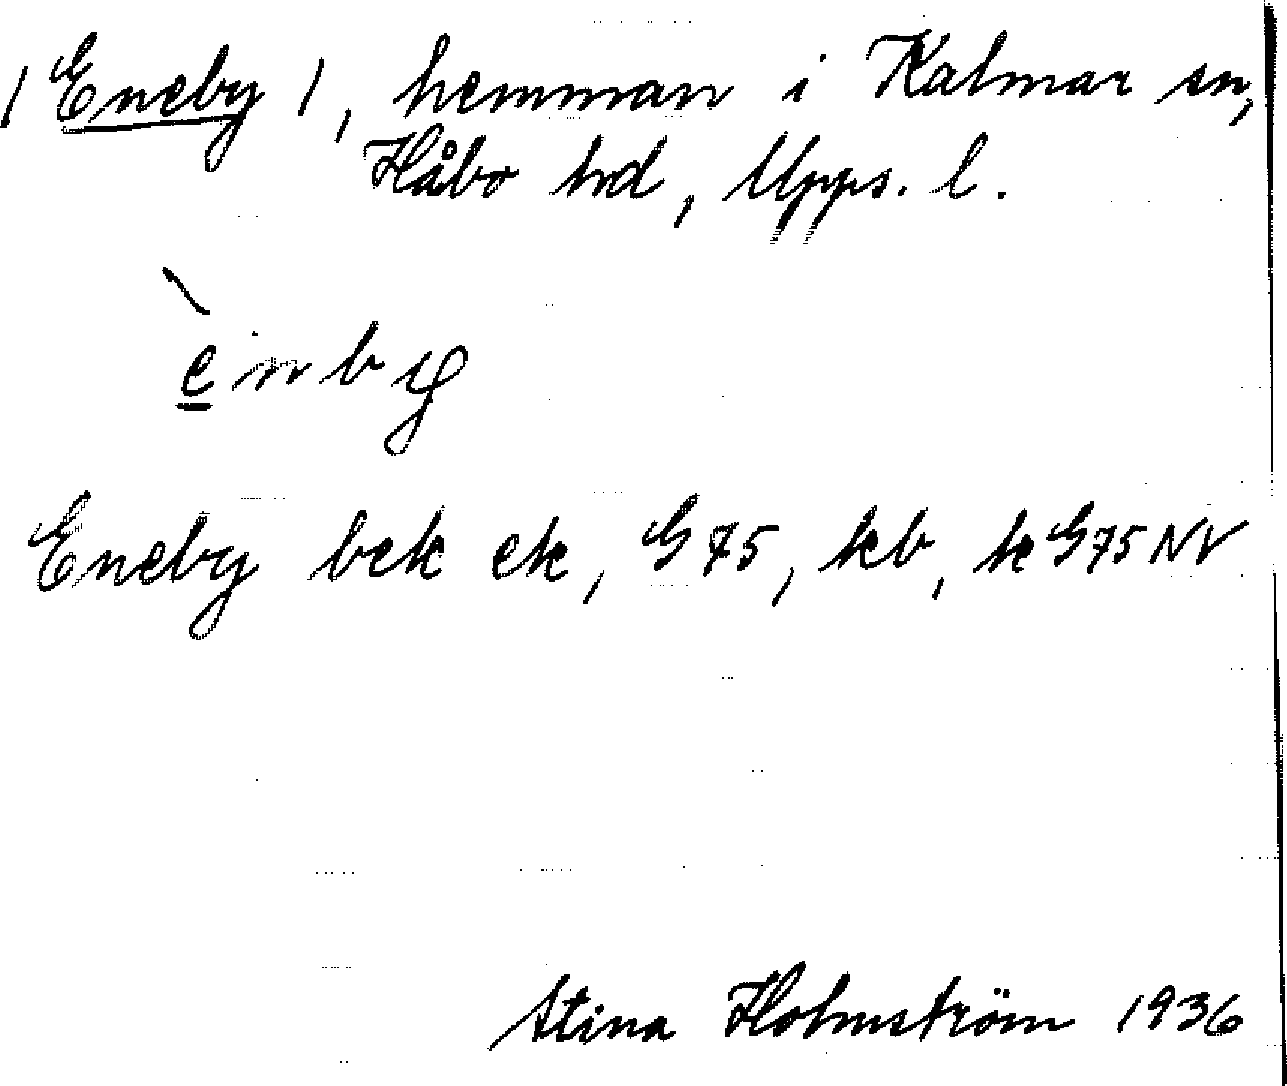 /Eneby/, hemman i Kalmar sn,
Håbo hd, Upps. l.
è̱nby
Eneby bek ek, G75, kb, k G75 NV
Stina Holmström 1936